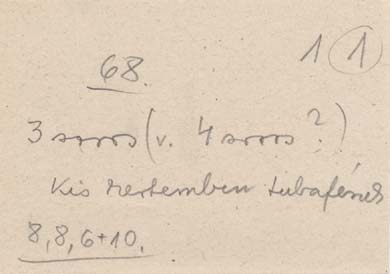 68. 1 1
3 soros (v. 4 soros?)
Kis kertemben tubafének
8,8,6+10.